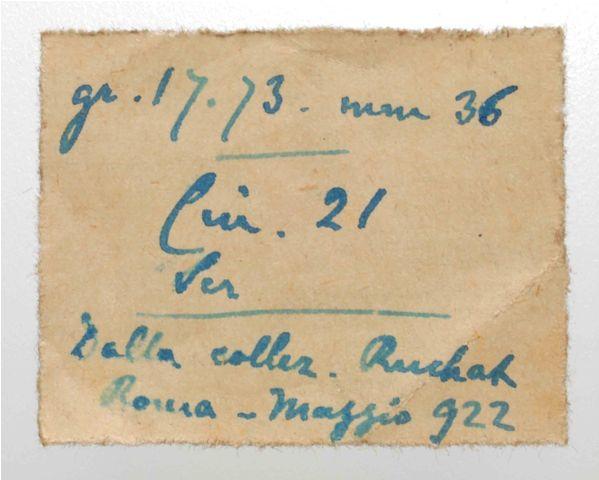 gr. 17.73. mm 36
Cin. 21
Ser
Dalla collez. Ruchat
Roma - Maggio 922